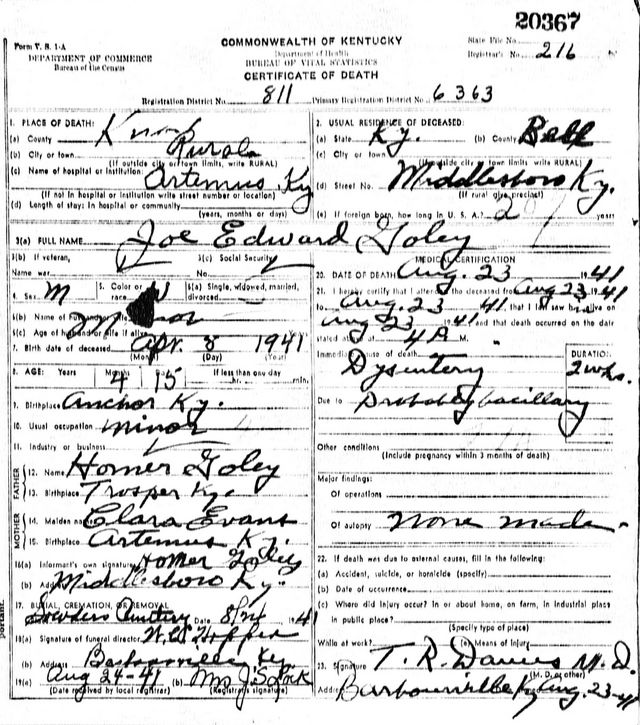 20367
Form V. S. 1-A
DEPARTMENT OF COMMERCE
Bureau of the Census
COMMONWEALTH OF KENTUCKY
Department of Health
BUREAU OF VITAL STATISTICS
CERTIFICATE OF DEATH
State File No.
Registrar's No. 216
Registration District No. 811 Primary Registration District No. 6363
1. PLACE OF DEATH:
(a) County Knox
(b) City or town Rural
(If outside city or town limits, write RURAL)
(c) Name of hospital or institution: Artemus, Ky
(If not in hospital or institution write street number or location)
(d) Length of stay: In hospital or community
(years, months or days)
2. USUAL RESIDENCE OF DECEASED:
(a) State Ky. (b) County Bell
(c) City or town
(If outside city or town limits, write RURAL)
(d) Street No. Middlesboro Ky.
(If rural give precinct)
(e) If foreign born, how long in U. S. A.? years
3(a) FULL NAME Joe Edward Goley
3(b) If veteran, Name war 3(c) Social Security No.
4. Sex M 5. Color or race 6(a) Single, widowed, married, divorced
6(b) Name of husband or wife
6(c) Age of husband or wife if alive Years
7. Birth date of deceased Apr 8 1941
(Month) (Day) (Year)
8. AGE: Years Months 4 Days 15 If less than one day hr. min.
9. Birthplace Anchor Ky.
10. Usual occupation Minor
11. Industry or business
FATHER
12. Name Homer Goley
13. Birthplace Trosper Ky.
MOTHER
14. Maiden name Clara Evans
15. Birthplace Artemus Ky.
16(a) Informant's own signature Homer Goley
(b) Address Middlesboro Ky.
17. BURIAL, CREMATION, OR REMOVAL
Cemetery Date 8/24 1941
18(a) Signature of funeral director W. W. Hopper
(b) Address Barbourville Ky.
19(a) Aug 24-41 (b) Mrs J S
(Date received by local registrar) (Registrar's signature)
MEDICAL CERTIFICATION
20. DATE OF DEATH Aug. 23 1941
21. I hereby certify that I attended the deceased from Aug 23 1941
to Aug. 23 41, that I last saw him alive on
Aug 23 1941 and that death occurred on the date
stated above at 4 A M.
Immediate cause of death DURATION
Dysentery 2 wks.
Due to Probably bacillary
Other conditions
(Include pregnancy within 3 months of death)
Major findings:
Of operations
Of autopsy None made
22. If death was due to external causes, fill in the following:
(a) Accident, suicide, or homicide (specify)
(b) Date of occurrence
(c) Where did injury occur? In or about home, on farm, in industrial place
in public place?
(Specify type of place)
While at work? (e) Means of injury
23. Signature T. R. Davies M. D.
(M. D. or other)
Address Barbourville Ky Aug. 23-41